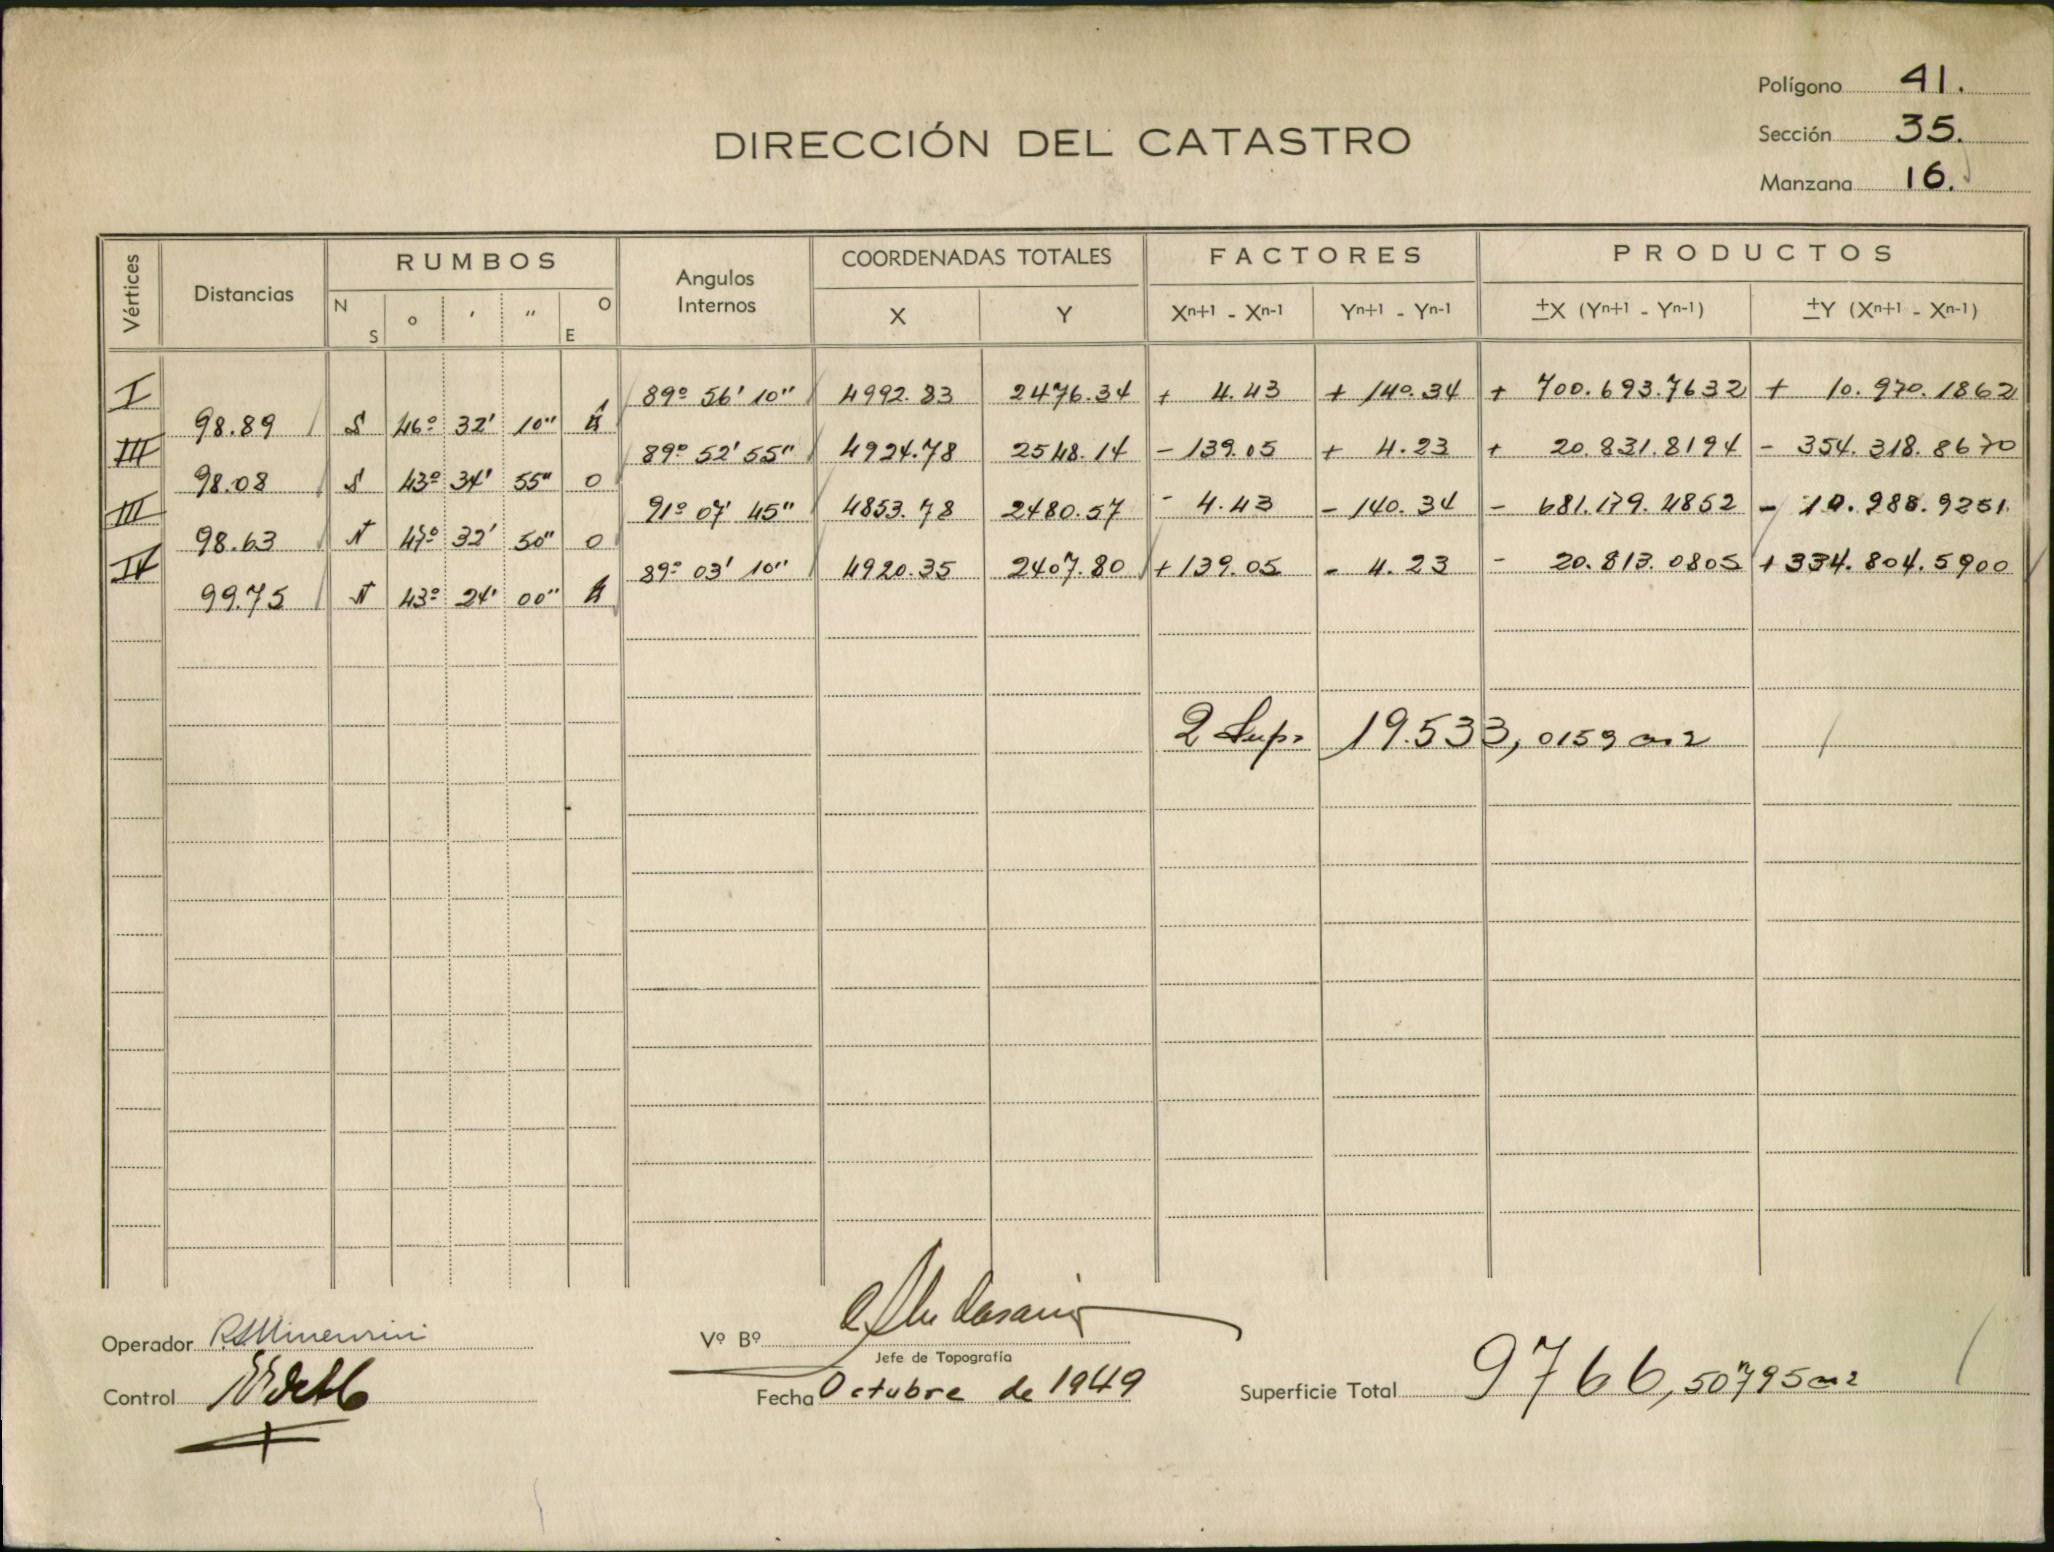 Polígono 41.
Sección 35.
Manzana 16.
DIRECCIÓN DEL CATASTRO
Vértices Distancias RUMBOS Angulos Internos COORDENADAS TOTALES FACTORES PRODUCTOS
N S ° ' " O E X Y Xn+1 - Xn-1 Yn+1 - Yn-1 ±X (Yn+1 - Yn-1) ±Y (Xn+1 - Xn-1)
I 89º 56' 10" 4992.83 2476.34 + 4.43 + 140.34 + 700.693.7632 + 10.970.1862
98.89 S 46º 32' 10"
III 89º 52' 55" 4924.78 2548.14 - 139.05 + 4.23 + 20.831.8194 - 354.318.8670
98.08 S 43º 34' 55" O
III 91º 07' 45" 4853.78 2480.57 - 4.43 - 140.34 - 681.179.4852 - 10.988.9251
98.63 N 47º 32' 50" O
IV 89º 03' 10" 4920.35 2407.80 + 139.05 - 4.23 - 20.813.0805 + 334.804.5900
99.75 N 43º 24' 00"
2 Sup. 19.533,0159 m2
Operador
Vº Bº
Jefe de Topografía
Control
Fecha Octubre de 1949
Superficie Total 9766,50795 m2